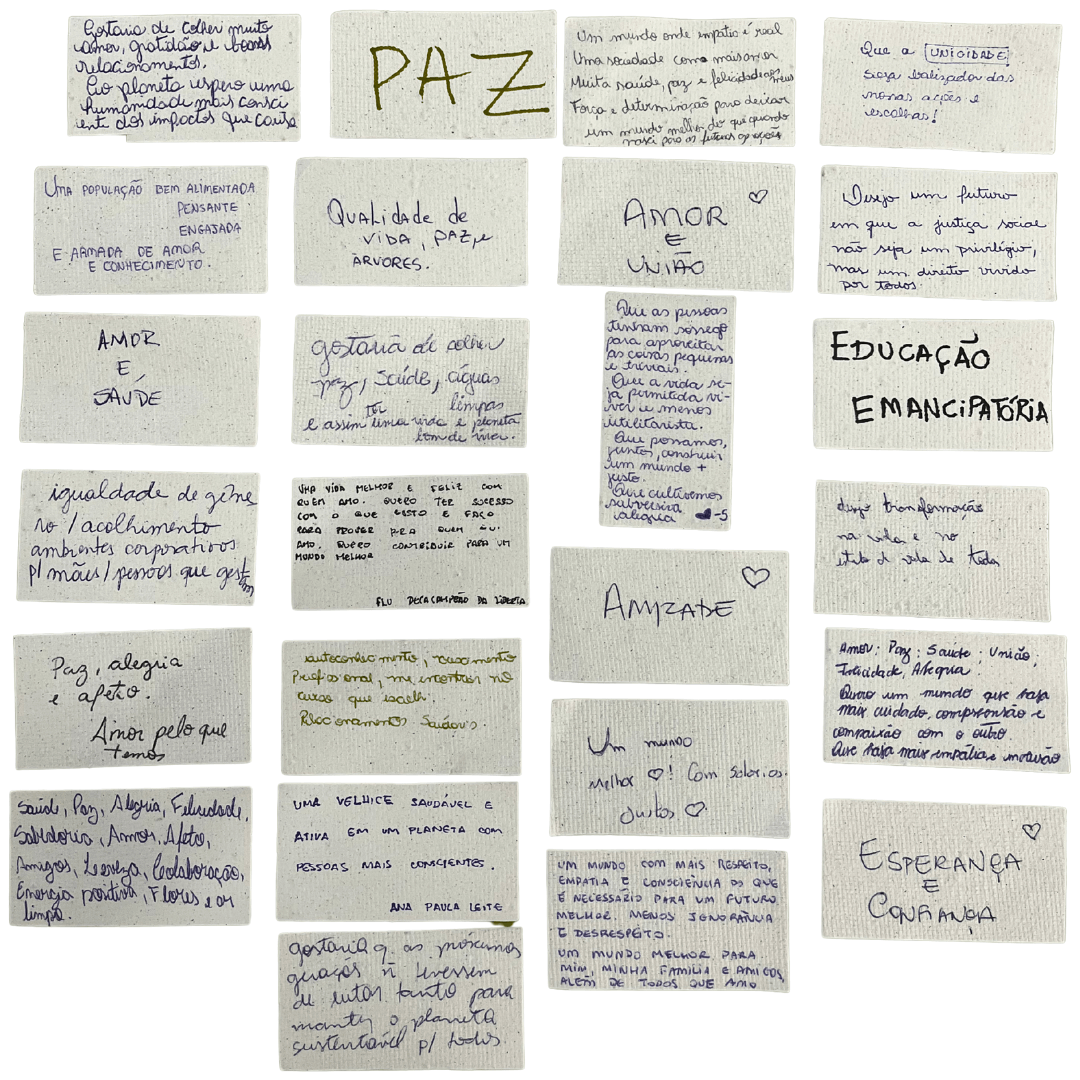 Gostaria de colher muito
amor, gratidão e boas
relacionamentos.
Ao planeta espero uma
humanidade mais consci
ente dos impactos que causa
PAZ
Um mundo onde empatia é real
Uma sociedade com mais amor
Muita saúde, paz e felicidade aos meus
Força e determinação para deixar
um mundo melhor do que quando
nasci para as futuras gerações
Que a UNICIDADE
Seja balizador das
nossas ações e
escolhas!
UMA POPULAÇÃO BEM ALIMENTADA
PENSANTE
ENGAJADA
E ARMADA DE AMOR
E CONHECIMENTO.
QUALIDADE de
VIDA, PAZ, e
ÁRVORES.
AMOR
E
UNIÃO
Desejo um futuro
em que a justiça social
não seja um privilégio,
mas um direito vivido
por todos.
AMOR
E
SAÚDE
gostaria de colher
paz, saúde, águas
limpas
e assim ter uma vida e planeta
bom de viver.
Que as pessoas
tenham sossego
para aproveitar
as coisas pequenas
e triviais.
Que a vida se-
ja permitida vi-
ver e menos
utilitarista.
Que possamos,
juntos, construir
um mundo +
justo.
Que cultivemos
subversiva
alegria
EDUCAÇÃO
EMANCIPATÓRIA
igualdade de gêne
ro / acolhimento
ambientes corporativos
p/ mães / pessoas que gestam
UMA VIDA MELHOR E FELIZ COM
QUEM AMO. QUERO TER SUCESSO
COM O QUE GOSTO E FAÇO
PARA PROVER PRA QUEM EU
AMO. QUERO CONTRIBUIR PARA UM
MUNDO MELHOR
FLU DECACAMPEÃO DA LIBERTA
desejo transformação
na vida e no
estilo de vida de todos
AMIZADE
Paz, alegria
e afeto.
Amor pelo que
temos
autoconhecimento, crescimento
Profissional, me encontrar no
curso que escolhi.
Relacionamentos Saudáveis.
Amor; Paz; Saúde; União;
Felicidade, Alegria.
Quero um mundo que haja
mais cuidado, compreensão e
compaixão com o outro.
Que haja mais empatia e inclusão
Um mundo
melhor! Com Salários
Justos
Saúde, Paz, Alegria, Felicidade,
Sabedoria, Amor, Afeto,
Amigos, Leveza, Colaboração,
Energia positiva, Flores e ar
limpo.
UMA VELHICE SAUDÁVEL E
ATIVA EM UM PLANETA COM
PESSOAS MAIS CONSCIENTES.
ANA PAULA LEITE
ESPERANÇA
E
CONFIANÇA
UM MUNDO COM MAIS RESPEITO,
EMPATIA E CONSCIÊNCIA DO QUE
É NECESSÁRIO PARA UM FUTURO
MELHOR. MENOS IGNORÂNCIA
E DESRESPEITO.
UM MUNDO MELHOR PARA
MIM, MINHA FAMÍLIA E AMIGOS,
ALÉM DE TODOS QUE AMO
gostaria q as próximas
gerações ñ tivessem
de lutar tanto para
manter o planeta
sustentável p/ todos.